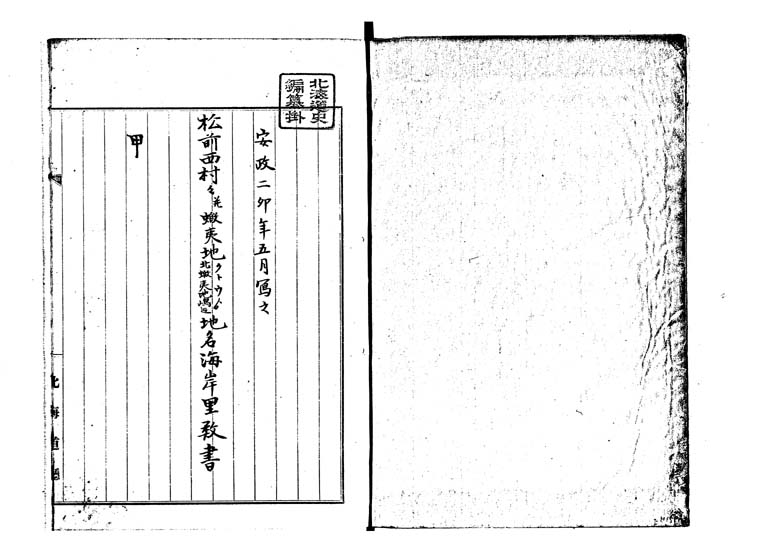 北海道史
編纂掛
安政二卯年五月写之
松前西村々並蝦夷地
北蝦夷地
地名海岸里数書
甲
北海道廳